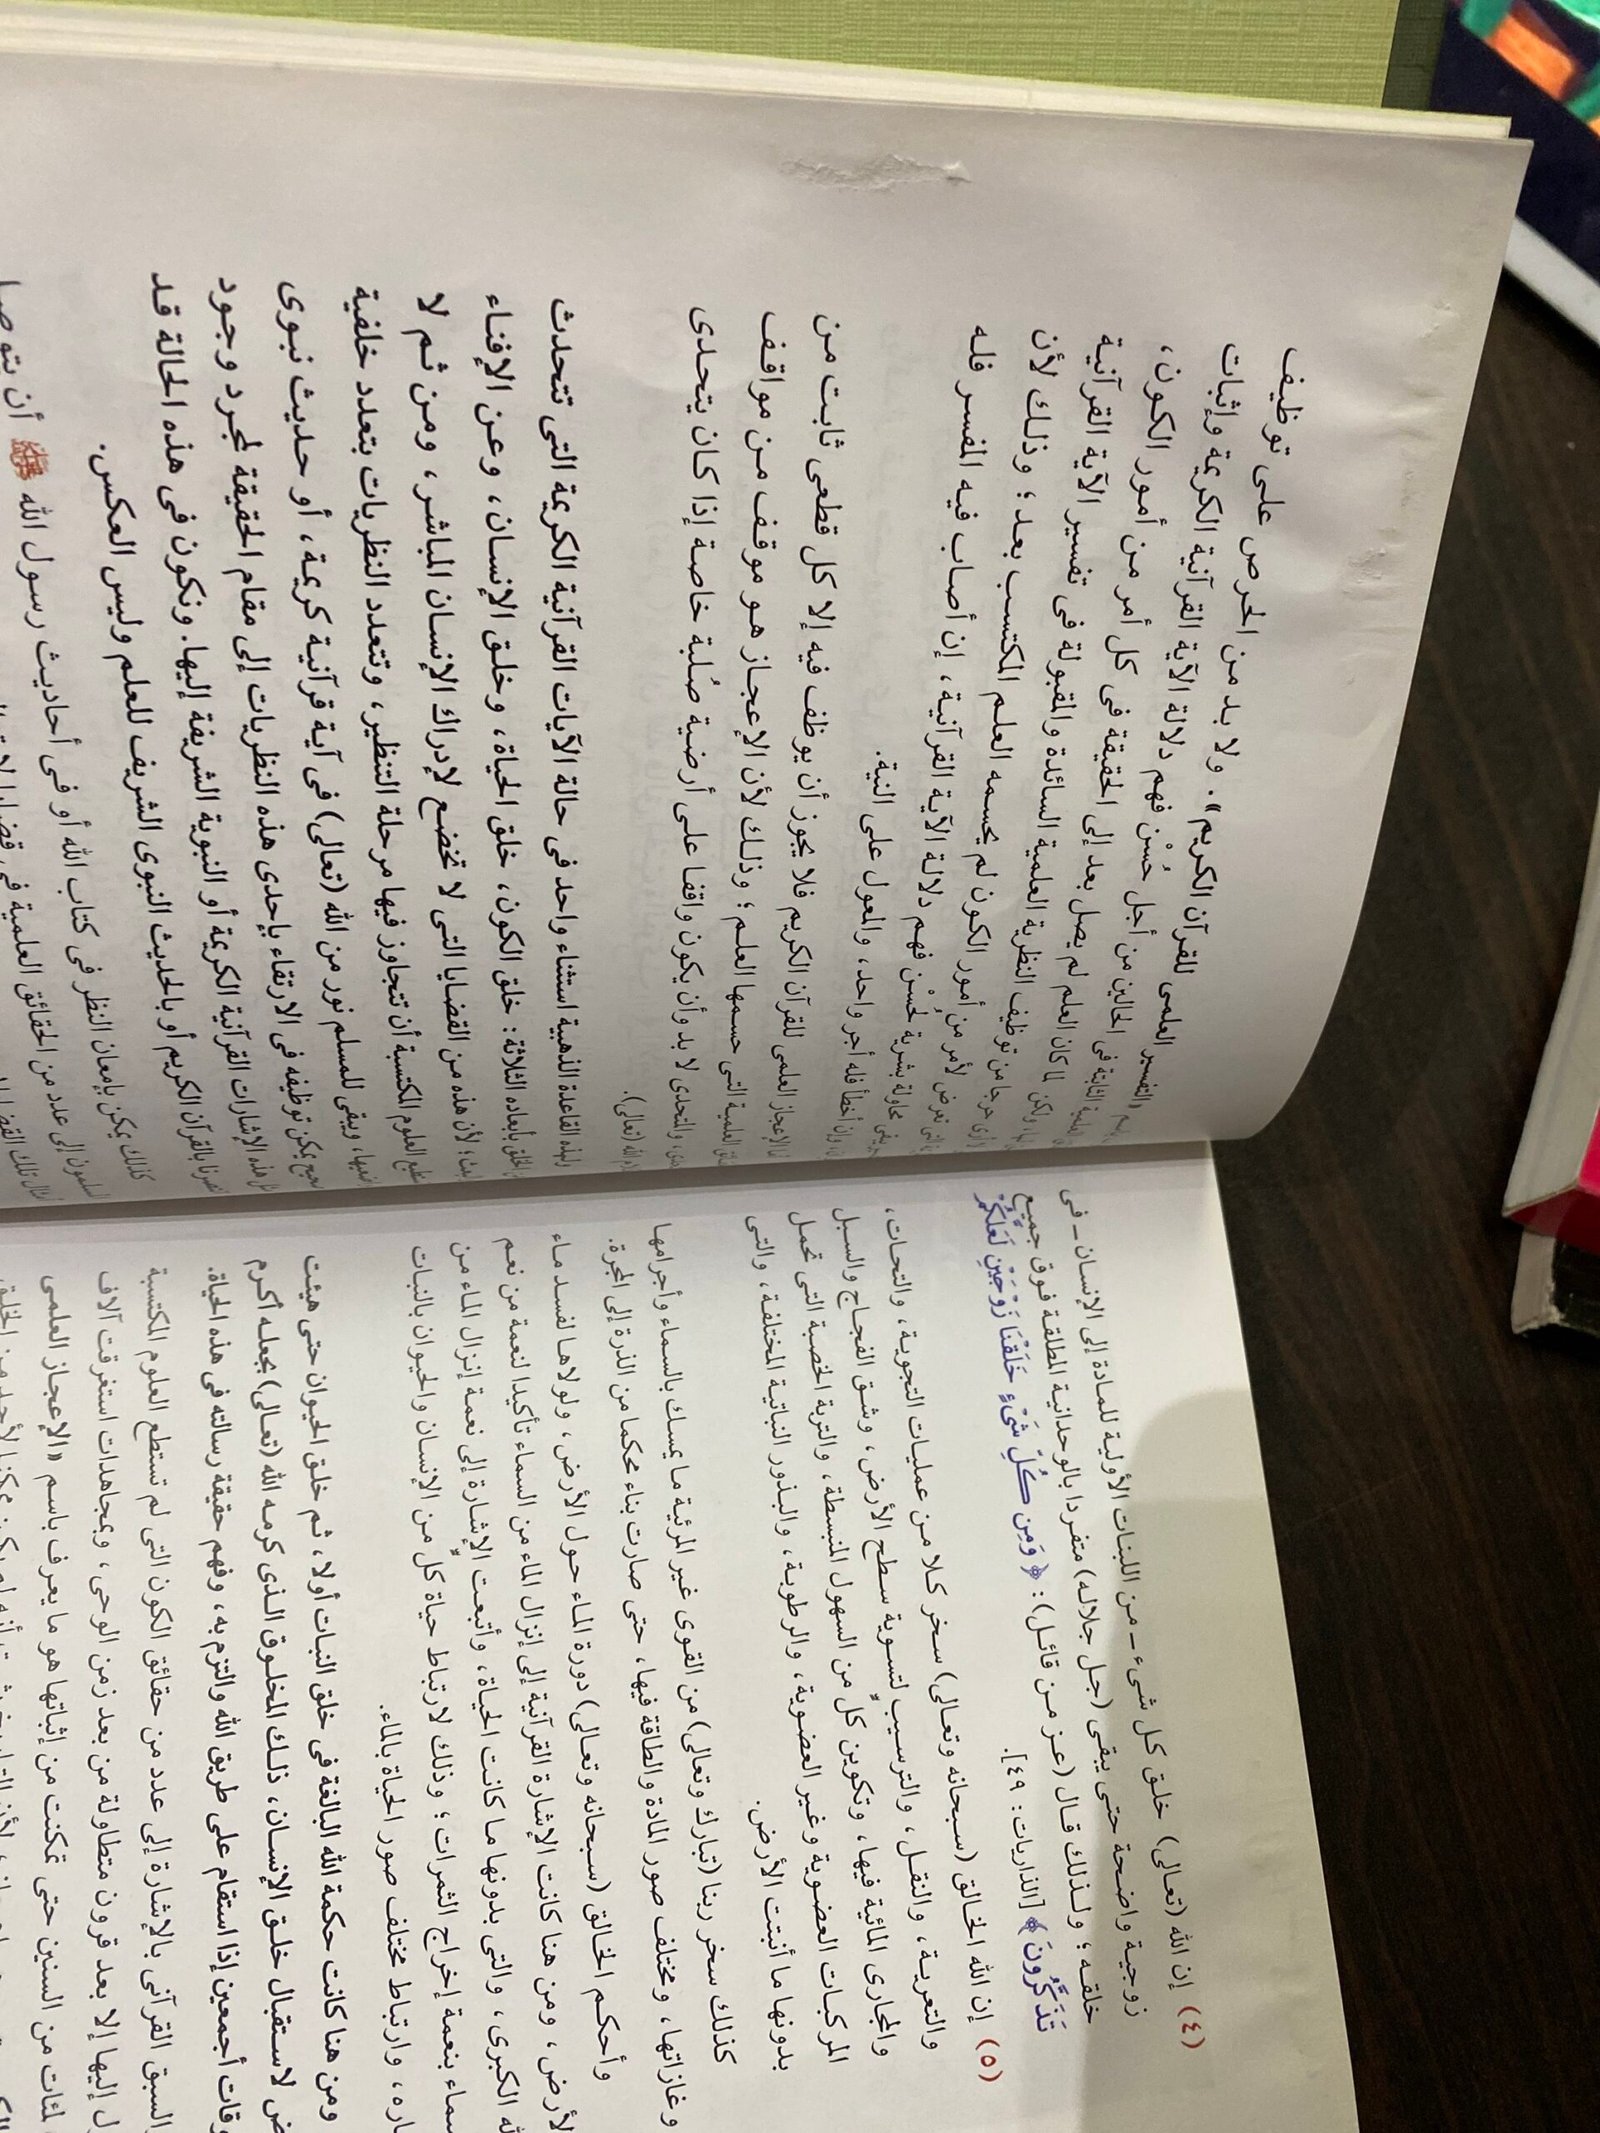 (٤) إن الله (تعالى) خلق كل شىء ــ من اللبنات الأولية للمادة إلى الإنسان ــ فى
زوجية واضحة حتى يبقى (جل جلاله) متفردا بالوحدانية المطلقة فوق جميع
خلقه؛ ولذلك قال (عز من قائل): ﴿وَمِن كُلِّ شَىْءٍ خَلَقْنَا زَوْجَيْنِ لَعَلَّكُمْ
تَذَكَّرُونَ﴾ [الذاريات: ٤٩].
(٥) إن الله الخالق (سبحانه وتعالى) سخر كلا من عمليات التجوية، والتحات،
والتعرية، والنقل، والترسيب لتسوية سطح الأرض، وشق الفجاج والسبل
والمجارى المائية فيها، وتكوين كلٍ من السهول المنبسطة، والتربة الخصبة التى تحمل
المركبات العضوية وغير العضوية، والرطوبة، والبذور النباتية المختلفة، والتى
بدونها ما أنبتت الأرض.
كذلك سخر ربنا (تبارك وتعالى) من القوى غير المرئية ما يمسك بالسماء وأجرامها
وغازاتها، ومختلف صور المادة والطاقة فيها، حتى صارت بناء محكما من الذرة إلى المجرة.
وأحكم الخالق (سبحانه وتعالى) دورة الماء حول الأرض، ولولاها لفسد ماء
لأرض، ومن هنا كانت الإشارة القرآنية إلى إنزال الماء من السماء تأكيدا لنعمة من نعم
الكبرى، والتى بدونها ما كانت الحياة، وأتبعت الإشارة إلى نعمة إنزال الماء من
سماء بنعمة إخراج الثمرات؛ وذلك لارتباط حياة كلٍ من الإنسان والحيوان بالنبات
وارتباط مختلف صور الحياة بالماء.
ومن هنا كانت حكمة الله البالغة فى خلق النبات أولا، ثم خلق الحيوان حتى هيئت
لاستقبال خلق الإنسان، ذلك المخلوق الذى كرمه الله (تعالى) بجعله أكرم
أجمعين إذا استقام على طريق الله والتزم به، وفهم حقيقة رسالته فى هذه الحياة.
السبق القرآنى بالإشارة إلى عدد من حقائق الكون التى لم تستطع العلوم المكتسبة
إليها إلا بعد قرون متطاولة من بعد زمن الوحى، وبمجاهدات استغرقت آلاف
لمئات من السنين حتى تمكنت من إثباتها هو ما يعرف باسم «الإعجاز العلمى
«التفسير العلمى للقرآن الكريم». ولا بد من الحرص على توظيف
الثابتة فى الحالين من أجل حُسْن فهم دلالة الآية القرآنية الكريمة وإثبات
ولكن لما كان العلم لم يصل بعد إلى الحقيقة فى كل أمر من أمور الكون،
حرجا من توظيف النظرية العلمية السائدة والمقبولة فى تفسير الآية القرآنية
التى تعرض لأمر من أمور الكون لم يحسمه العلم المكتسب بعد؛ وذلك لأن
يبقى محاولة بشرية لحُسْن فهم دلالة الآية القرآنية، إن أصاب فيه المفسر فله
وإن أخطأ فله أجر واحد، والمعول على النية.
الإعجاز العلمى للقرآن الكريم فلا يجوز أن يوظف فيه إلا كل قطعى ثابت من
العلمية التى حسمها العلم؛ وذلك لأن الإعجاز هو موقف من مواقف
والتحدى لا بد وأن يكون واقفا على أرضية صُلبة خاصة إذا كان يتحدى
الله (تعالى).
ولهذه القاعدة الذهبية استثناء واحد فى حالة الآيات القرآنية الكريمة التى تتحدث
الخلق بأبعاده الثلاثة: خلق الكون، خلق الحياة، وخلق الإنسان، وعن الإفناء
لأن هذه من القضايا التى لا تخضع لإدراك الإنسان المباشر، ومن ثم لا
العلوم المكتسبة أن تتجاوز فيها مرحلة التنظير، وتتعدد النظريات بتعدد خلفية
ويبقى للمسلم نور من الله (تعالى) فى آية قرآنية كريمة، أو حديث نبوى
يمكن توظيفه فى الارتقاء بإحدى هذه النظريات إلى مقام الحقيقة لمجرد وجود
هذه الإشارات القرآنية الكريمة أو النبوية الشريفة إليها. ونكون فى هذه الحالة قد
بالقرآن الكريم أو بالحديث النبوى الشريف للعلم وليس العكس.
كذلك يمكن بإمعان النظر فى كتاب الله أو فى أحاديث رسول الله ﷺ أن يتوصل
إلى عدد من الحقائق العلمية فى